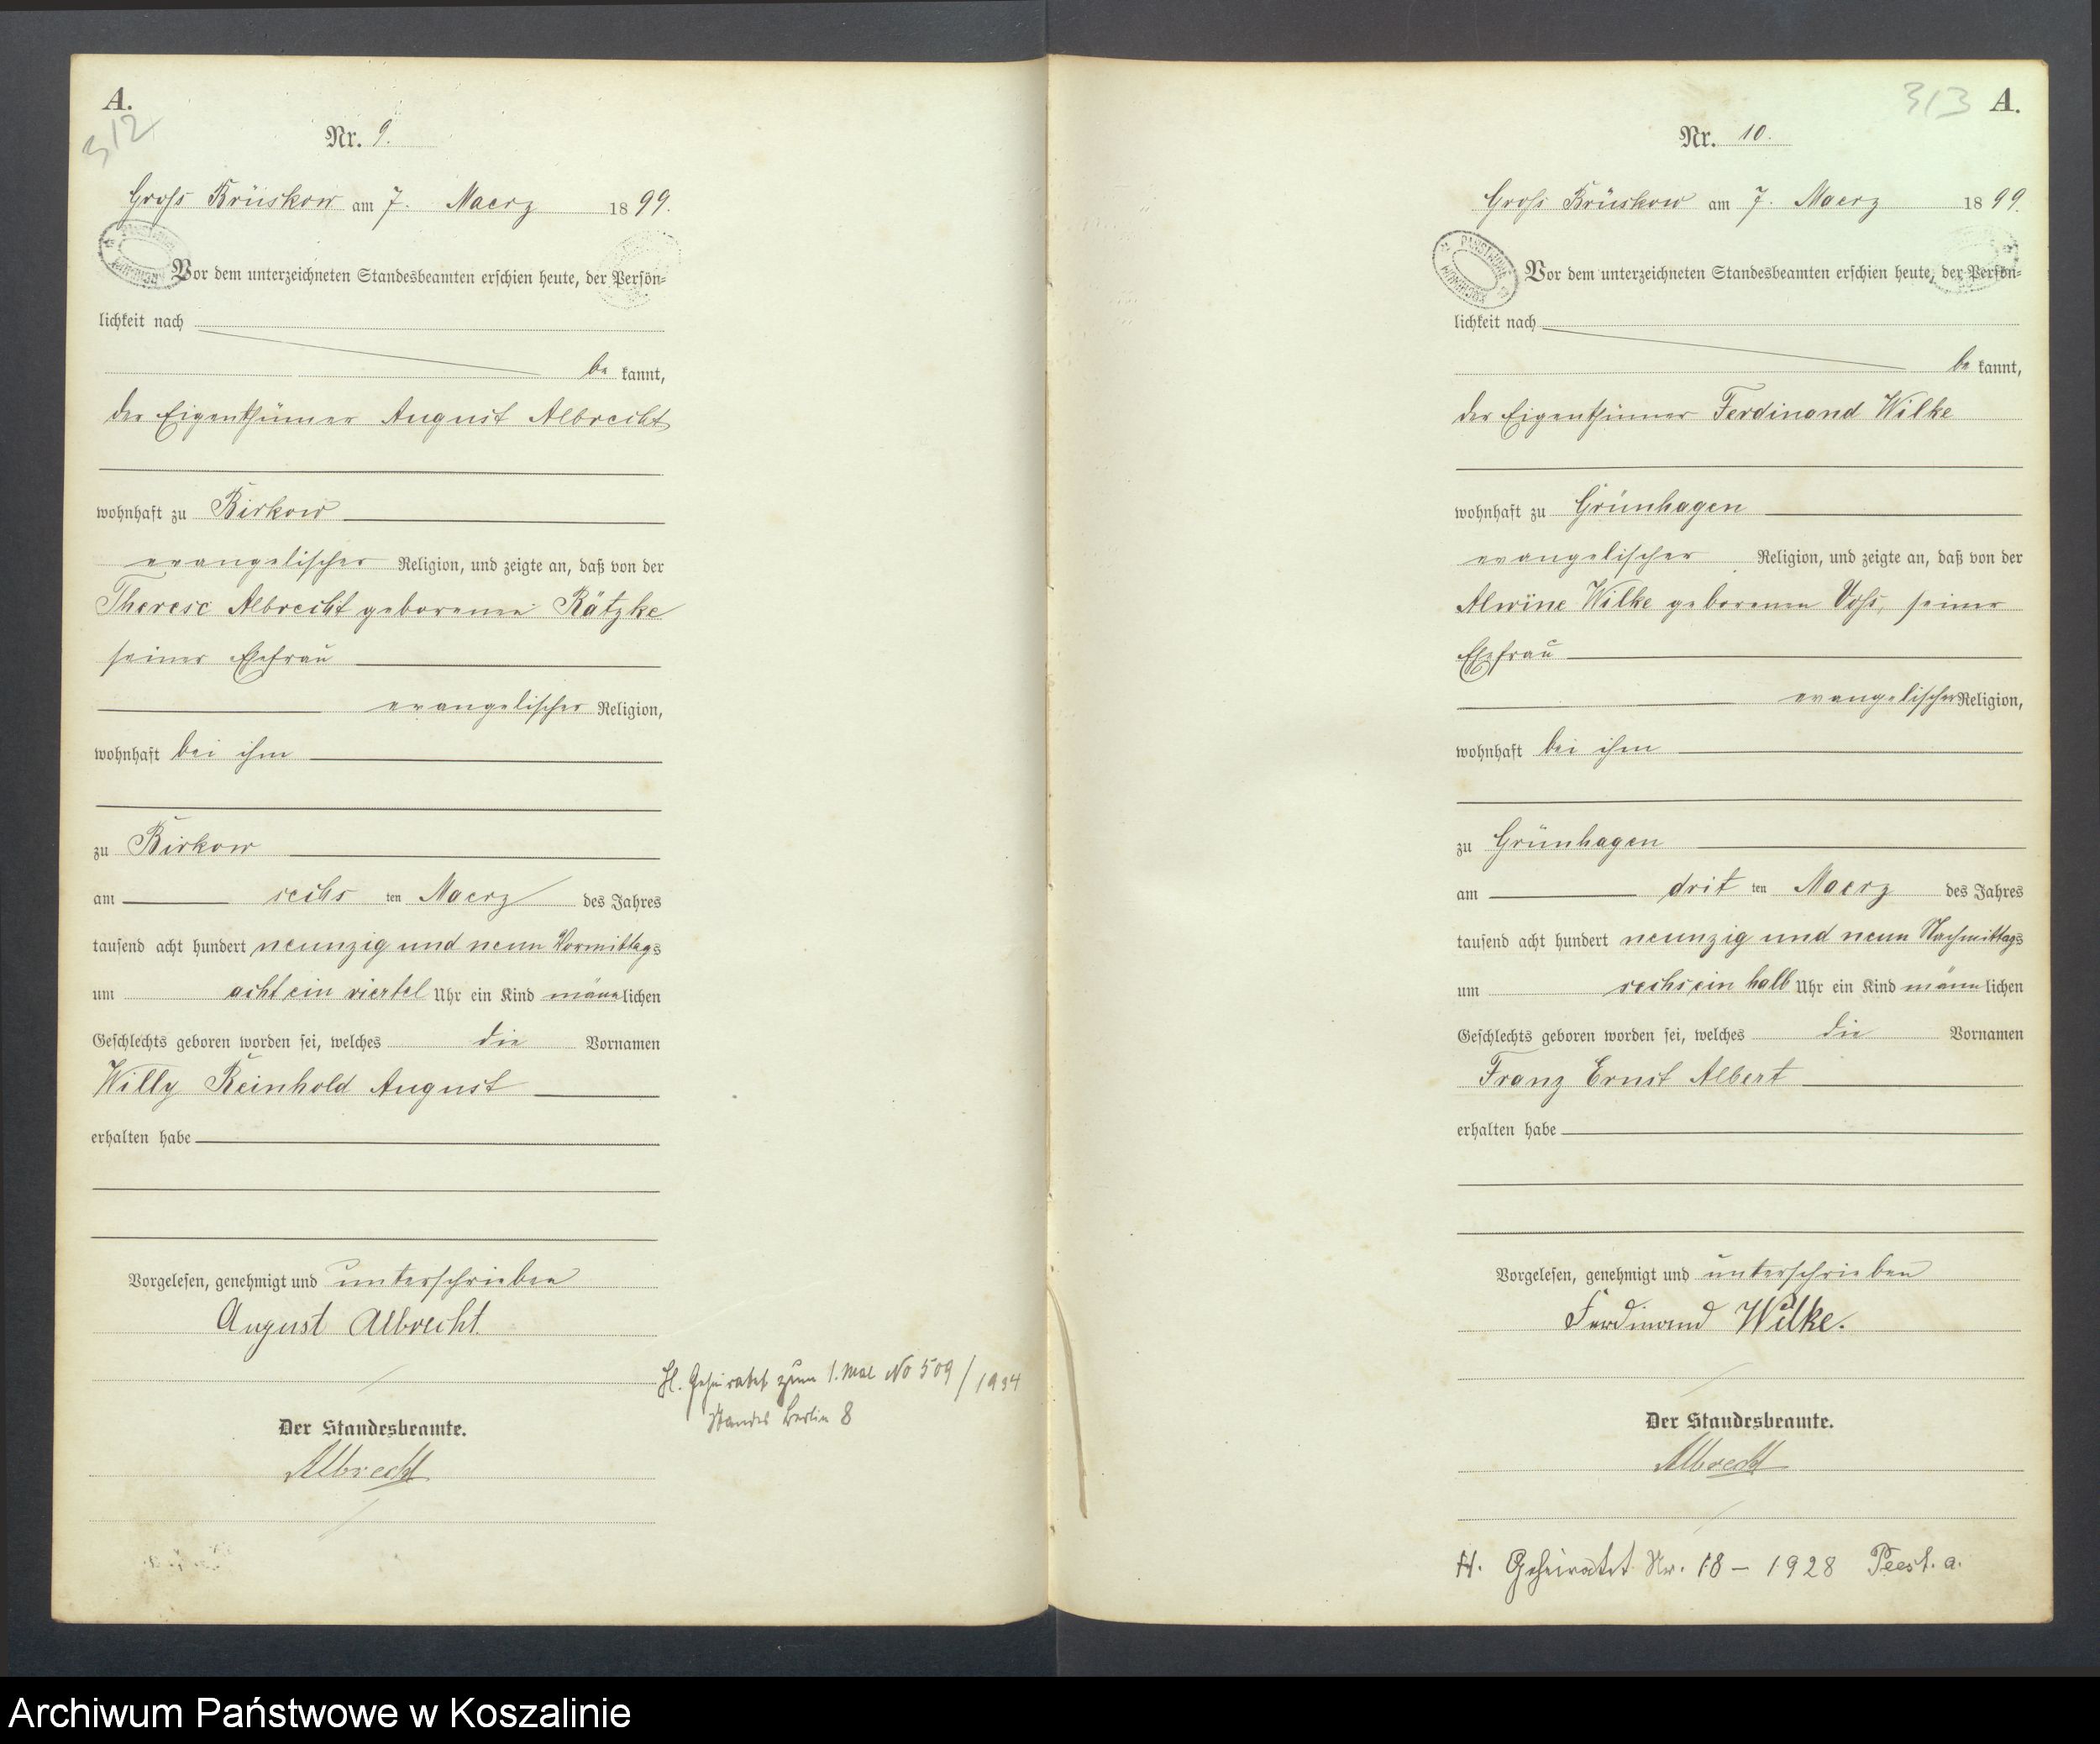 A.
312
Nr. 9.
Gross Brüskow am 7. Maerz 1899.
Vor dem unterzeichneten Standesbeamten erschien heute, der Persön-
lichkeit nach
be kannt,
der Eigenthümer August Albrecht
wohnhaft zu Birkow
evangelischer Religion, und zeigte an, daß von der
Therese Albrecht geborenen Rätzke
seiner Ehefrau
evangelischer Religion,
wohnhaft bei ihm
zu Birkow
am sechs ten Maerz des Jahres
tausend acht hundert neunzig und neun Vormittags
um acht ein viertel Uhr ein Kind männlichen
Geschlechts geboren worden sei, welches die Vornamen
Willy Reinhold August
erhalten habe
Vorgelesen, genehmigt und unterschrieben
August Albrecht
H. Geheiratet zum 1. Mal No 509/1934
Standes Berlin 8
Der Standesbeamte.
Albrecht
313
A.
Nr. 10.
Gross Brüskow am 7. Maerz 1899.
Vor dem unterzeichneten Standesbeamten erschien heute, der Persön-
lichkeit nach
be kannt,
der Eigenthümer Ferdinand Wilke
wohnhaft zu Grünhagen
evangelischer Religion, und zeigte an, daß von der
Alwine Wilke geborenen Voss, seiner
Ehefrau
evangelischer Religion,
wohnhaft bei ihm
zu Grünhagen
am drit ten Maerz des Jahres
tausend acht hundert neunzig und neun Nachmittags
um sechs ein halb Uhr ein Kind männlichen
Geschlechts geboren worden sei, welches die Vornamen
Franz Ernst Albert
erhalten habe
Vorgelesen, genehmigt und unterschrieben
Ferdinand Wilke.
Der Standesbeamte.
Albrecht
H. Geheiratet Nr. 18 – 1928 Peest. a.
Archiwum Państwowe w Koszalinie